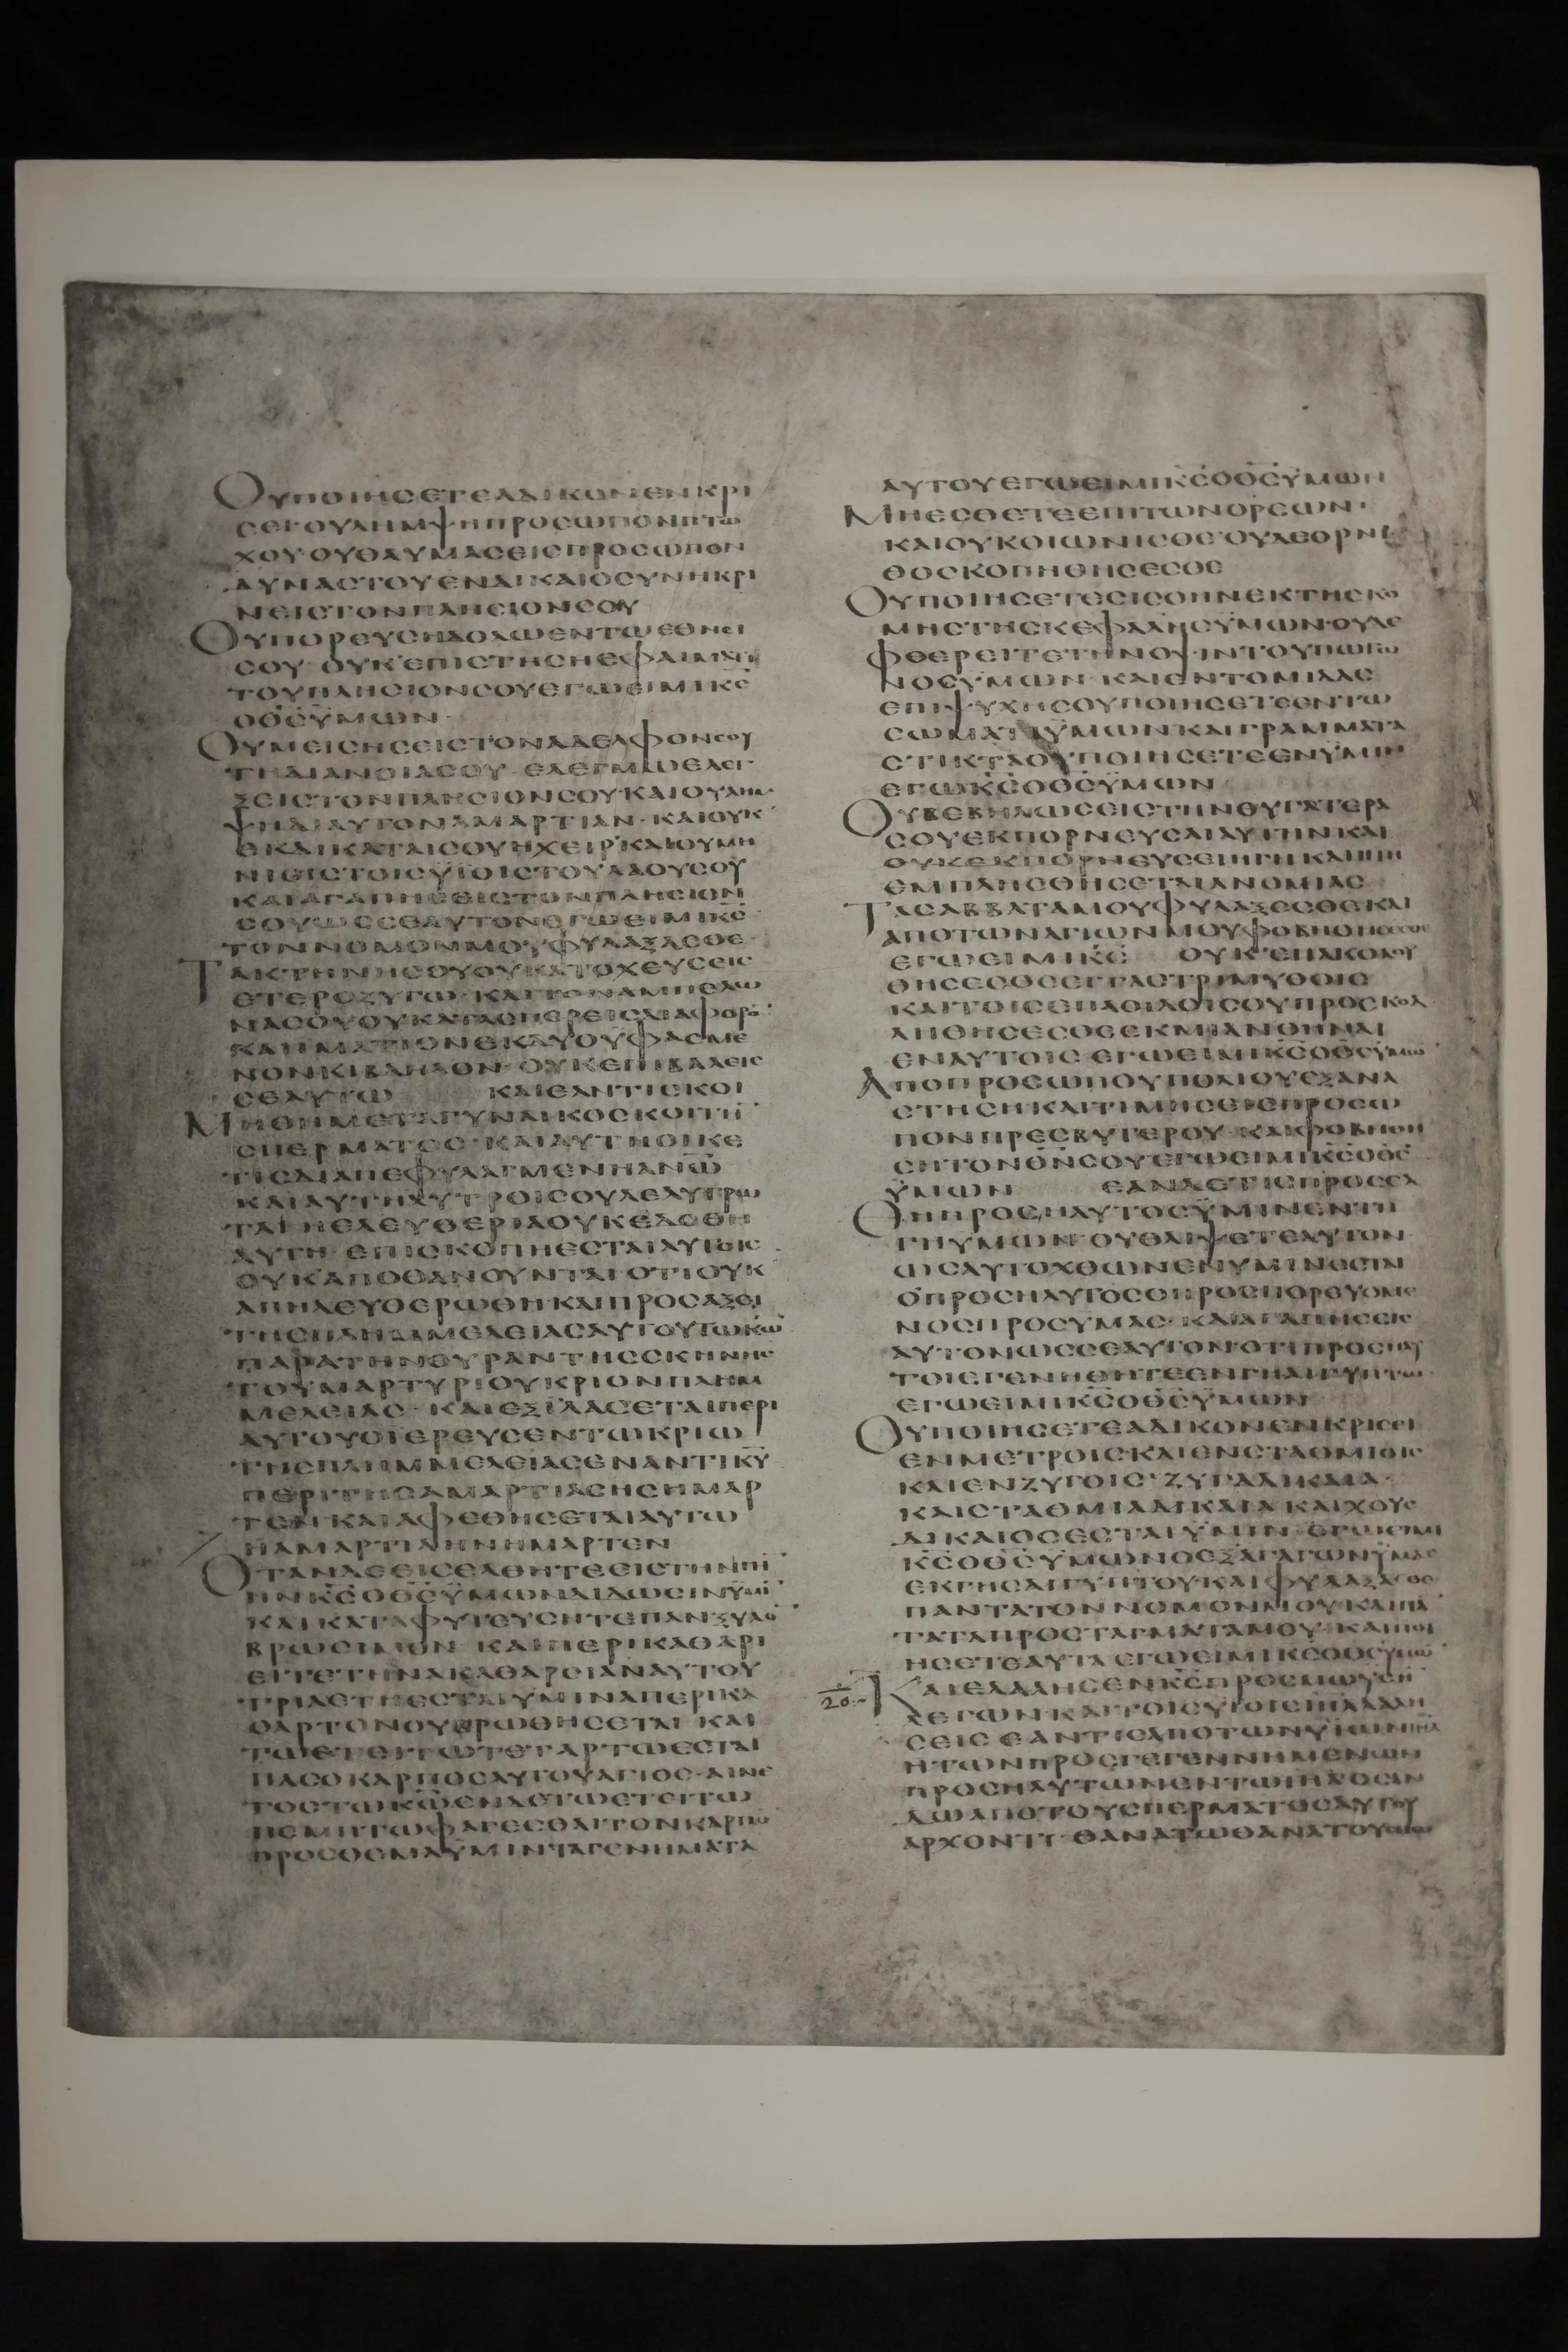 ΟΥΠΟΙΗΣΕΤΕΑΔΙΚΟΝΕΝΚΡΙ
ΣΕΙΟΥΛΗΜΨΗΠΡΟΣΩΠΟΝΠΤΩ
ΧΟΥ·ΟΥΘΑΥΜΑΣΕΙΣΠΡΟΣΩΠΟΝ
ΔΥΝΑΣΤΟΥΕΝΔΙΚΑΙΟΣΥΝΗΚΡΙ
ΝΕΙΣΤΟΝΠΛΗΣΙΟΝΣΟΥ
ΟΥΠΟΡΕΥΣΗΔΟΛΩΕΝΤΩΕΘΝΕΙ
ΣΟΥ·ΟΥΚΕΠΙΣΤΗΣΗΕΦΑΙΜΑ
ΤΟΥΠΛΗΣΙΟΝΣΟΥΕΓΩΕΙΜΙΚΣ
ΟΘΣΫΜΩΝ·
ΟΥΜΕΙΣΗΣΕΙΣΤΟΝΑΔΕΛΦΟΝΣΟΥ
ΤΗΔΙΑΝΟΙΑΣΟΥ·ΕΛΕΓΜΩΕΛΕΓ
ΞΕΙΣΤΟΝΠΛΗΣΙΟΝΣΟΥ·ΚΑΙΟΥΛΗΜ
ΨΗΔΙΑΥΤΟΝΑΜΑΡΤΙΑΝ·ΚΑΙΟΥΚ
ΕΚΔΙΚΑΤΑΙΣΟΥΗΧΕΙΡΚΑΙΟΥΜΗ
ΝΙΕΙΣΤΟΙΣΫΙΟΙΣΤΟΥΛΑΟΥΣΟΥ
ΚΑΙΑΓΑΠΗΣΕΙΣΤΟΝΠΛΗΣΙΟΝ
ΣΟΥΩΣΣΕΑΥΤΟΝΕΓΩΕΙΜΙΚΣ
ΤΟΝΝΟΜΟΝΜΟΥΦΥΛΑΞΑΣΘΕ·
ΤΑΚΤΗΝΗΣΟΥΟΥΚΑΤΟΧΕΥΣΕΙΣ
ΕΤΕΡΟΖΥΓΩ·ΚΑΙΤΟΝΑΜΠΕΛΩ
ΝΑΣΟΥΟΥΚΑΤΑΣΠΕΡΕΙΣΔΙΑΦΟΡΟ
ΚΑΙΙΜΑΤΙΟΝΕΚΔΥΟΥΦΑΣΜΕ
ΝΟΝΚΙΒΔΗΛΟΝ·ΟΥΚΕΠΙΒΑΛΕΙΣ
ΣΕΑΥΤΩ ΚΑΙΕΑΝΤΙΣΚΟΙ
ΜΗΘΗΜΕΤΑΓΥΝΑΙΚΟΣΚΟΙΤΗ
ΣΠΕΡΜΑΤΟΣ·ΚΑΙΑΥΤΗΟΙΚΕ
ΤΙΣΔΙΑΠΕΦΥΛΑΓΜΕΝΗΑΝΩ
ΚΑΙΑΥΤΗΛΥΤΡΟΙΣΟΥΛΕΛΥΤΡΩ
ΤΑΙΗΕΛΕΥΘΕΡΙΑΟΥΚΕΔΟΘΗ
ΑΥΤΗ·ΕΠΙΣΚΟΠΗΕΣΤΑΙΑΥΤΟΙΣ
ΟΥΚΑΠΟΘΑΝΟΥΝΤΑΙΟΤΙΟΥΚ
ΑΠΗΛΕΥΘΕΡΩΘΗΚΑΙΠΡΟΣΑΞΕΙ
ΤΗΣΠΛΗΜΜΕΛΕΙΑΣΑΥΤΟΥΤΩΚΩ
ΠΑΡΑΤΗΝΘΥΡΑΝΤΗΣΣΚΗΝΗΣ
ΤΟΥΜΑΡΤΥΡΙΟΥΚΡΙΟΝΠΛΗΜ
ΜΕΛΕΙΑΣ·ΚΑΙΕΞΙΛΑΣΕΤΑΙΠΕΡΙ
ΑΥΤΟΥΟΪΕΡΕΥΣΕΝΤΩΚΡΙΩ
ΤΗΣΠΛΗΜΜΕΛΕΙΑΣΕΝΑΝΤΙΚΥ
ΠΕΡΙΤΗΣΑΜΑΡΤΙΑΣΗΣΗΜΑΡ
ΤΕΝΚΑΙΑΦΕΘΗΣΕΤΑΙΑΥΤΩ
ΗΑΜΑΡΤΙΑΗΝΗΜΑΡΤΕΝ
ΟΤΑΝΔΕΕΙΣΕΛΘΗΤΕΕΙΣΤΗΝΓΗ
ΗΝΚΣΟΘΣΫΜΩΝΔΙΔΩΣΙΝΫΜΙ
ΚΑΙΚΑΤΑΦΥΤΕΥΣΗΤΕΠΑΝΞΥΛΟ
ΒΡΩΣΙΜΟΝ·ΚΑΙΠΕΡΙΚΑΘΑΡΙ
ΕΙΤΕΤΗΝΑΚΑΘΑΡΣΙΑΝΑΥΤΟΥ
ΤΡΙΑΕΤΗΕΣΤΑΙΫΜΙΝΑΠΕΡΙΚΑ
ΘΑΡΤΟΝΟΥΒΡΩΘΗΣΕΤΑΙ·ΚΑΙ
ΤΩΕΤΕΙΤΩΤΕΤΑΡΤΩΕΣΤΑΙ
ΠΑΣΟΚΑΡΠΟΣΑΥΤΟΥΑΓΙΟΣ·ΑΙΝΕ
ΤΟΣΤΩΚΩΕΝΔΕΤΩΕΤΕΙΤΩ
ΠΕΜΠΤΩΦΑΓΕΣΘΑΙΤΟΝΚΑΡΠΟ
ΠΡΟΣΘΕΜΑΫΜΙΝΤΑΓΕΝΗΜΑΤΑ
ΑΥΤΟΥΕΓΩΕΙΜΙΚΣΟΘΣΫΜΩΝ
ΜΗΕΣΘΕΤΕΕΠΙΤΩΝΟΡΕΩΝ·
ΚΑΙΟΥΚΟΙΩΝΙΣΘΕ·ΟΥΔΕΟΡΝΙ
ΘΟΣΚΟΠΗΘΗΣΕΣΘΕ
ΟΥΠΟΙΗΣΕΤΕΣΙΣΟΗΝΕΚΤΗΣΚΟ
ΜΗΣΤΗΣΚΕΦΑΛΗΣΫΜΩΝ·ΟΥΔΕ
ΦΘΕΡΕΙΤΕΤΗΝΟΨΙΝΤΟΥΠΩΓΩ
ΝΟΣΫΜΩΝ·ΚΑΙΕΝΤΟΜΙΔΑΣ
ΕΠΙΨΥΧΗΣΟΥΠΟΙΗΣΕΤΕΕΝΤΩ
ΣΩΜΑΤΙΫΜΩΝΚΑΙΓΡΑΜΜΑΤΑ
ΣΤΙΚΤΑΟΥΠΟΙΗΣΕΤΕΕΝΫΜΙΝ
ΕΓΩΚΣΟΘΣΫΜΩΝ
ΟΥΒΕΒΗΛΩΣΕΙΣΤΗΝΘΥΓΑΤΕΡΑ
ΣΟΥΕΚΠΟΡΝΕΥΣΑΙΑΥΤΗΝΚΑΙ
ΟΥΚΕΚΠΟΡΝΕΥΣΕΙΗΓΗΚΑΙΗΓΗ
ΕΜΠΛΗΣΘΗΣΕΤΑΙΑΝΟΜΙΑΣ
ΤΑΣΑΒΒΑΤΑΜΟΥΦΥΛΑΞΕΣΘΕΚΑΙ
ΑΠΟΤΩΝΑΓΙΩΝΜΟΥΦΟΒΗΘΗΣΕΣΘΕ
ΕΓΩΕΙΜΙΚΣ ΟΥΚΕΠΑΚΟΛΟΥ
ΘΗΣΕΣΘΕΕΓΓΑΣΤΡΙΜΥΘΟΙΣ
ΚΑΙΤΟΙΣΕΠΑΟΙΔΟΙΣΟΥΠΡΟΣΚΟΛ
ΛΗΘΗΣΕΣΘΕΕΚΜΙΑΝΘΗΝΑΙ
ΕΝΑΥΤΟΙΣ·ΕΓΩΕΙΜΙΚΣΟΘΣΫΜΩ
ΑΠΟΠΡΟΣΩΠΟΥΠΟΛΙΟΥΕΞΑΝΑ
ΣΤΗΣΗΚΑΙΤΙΜΗΣΕΙΣΠΡΟΣΩ
ΠΟΝΠΡΕΣΒΥΤΕΡΟΥ·ΚΑΙΦΟΒΗΘΗ
ΣΗΤΟΝΘΝΣΟΥΕΓΩΕΙΜΙΚΣΟΘΣ
ΫΜΩΝ ΕΑΝΔΕΤΙΣΠΡΟΣΕΛ
ΘΗΠΡΟΣΗΛΥΤΟΣΫΜΙΝΕΝΤΗ
ΓΗΥΜΩΝ·ΟΥΘΛΙΨΕΤΕΑΥΤΟΝ
ΩΣΑΥΤΟΧΘΩΝΕΝΥΜΙΝΕΣΤΑΙ
ΟΠΡΟΣΗΛΥΤΟΣΟΠΡΟΣΠΟΡΕΥΟΜΕ
ΝΟΣΠΡΟΣΥΜΑΣ·ΚΑΙΑΓΑΠΗΣΕΙΣ
ΑΥΤΟΝΩΣΣΕΑΥΤΟΝ·ΟΤΙΠΡΟΣΗΛΥ
ΤΟΙΕΓΕΝΗΘΗΤΕΕΝΓΗΑΙΓΥΠΤΩ
ΕΓΩΕΙΜΙΚΣΟΘΣΫΜΩΝ
ΟΥΠΟΙΗΣΕΤΕΑΔΙΚΟΝΕΝΚΡΙΣΕΙ
ΕΝΜΕΤΡΟΙΣ·ΚΑΙΕΝΣΤΑΘΜΙΟΙΣ
ΚΑΙΕΝΖΥΓΟΙΣ·ΖΥΓΑΔΙΚΑΙΑ·
ΚΑΙΣΤΑΘΜΙΑΔΙΚΑΙΑΚΑΙΧΟΥΣ
ΔΙΚΑΙΟΣΕΣΤΑΙΫΜΙΝ·ΕΓΩΕΙΜΙ
ΚΣΟΘΣΫΜΩΝΟΕΞΑΓΑΓΩΝΫΜΑΣ
ΕΚΓΗΣΑΙΓΥΠΤΟΥΚΑΙΦΥΛΑΞΑΣΘΕ
ΠΑΝΤΑΤΟΝΝΟΜΟΝΜΟΥΚΑΙΠΑ
ΤΑΤΑΠΡΟΣΤΑΓΜΑΤΑΜΟΥ·ΚΑΙΠΟΙ
ΗΣΕΤΕΑΥΤΑΕΓΩΕΙΜΙΚΣΟΘΣΫΜΩ
20 ΚΑΙΕΛΑΛΗΣΕΝΚΣΠΡΟΣΜΩΥΣΗ
ΛΕΓΩΝΚΑΙΤΟΙΣΥΙΟΙΣΙΗΛΛΑΛΗ
ΣΕΙΣΕΑΝΤΙΣΑΠΟΤΩΝΥΙΩΝΙΗΛ
ΗΤΩΝΠΡΟΣΓΕΓΕΝΝΗΜΕΝΩΝ
ΠΡΟΣΗΛΥΤΩΝΕΝΤΩΙΗΛΟΣΑΝ
ΔΩΑΠΟΤΟΥΣΠΕΡΜΑΤΟΣΑΥΤΟΥ
ΑΡΧΟΝΤΙ·ΘΑΝΑΤΩΘΑΝΑΤΟΥΣΘΩ